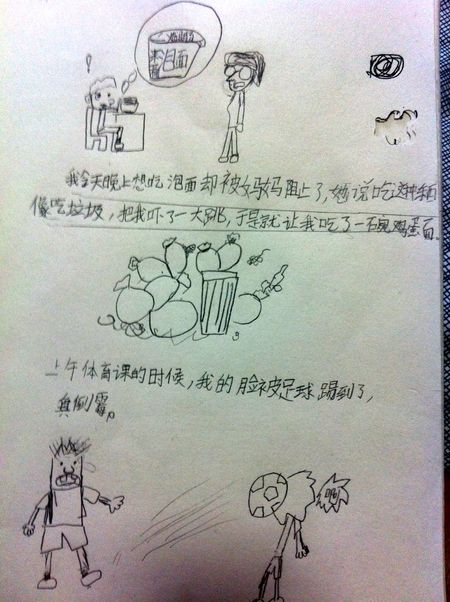 泡面
我今天晚上想吃泡面却被妈妈阻止了,她说吃这种东西
像吃垃圾,把我吓了一大跳,于是就让我吃了一碗鸡蛋面。
上午体育课的时候,我的脸被足球踢到了,
真倒霉。
啊